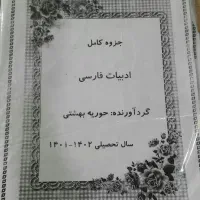 جزوه کامل
ادبیات فارسی
گردآورنده: حوریه بهشتی
سال تحصیلی ۱۴۰۲-۱۴۰۱